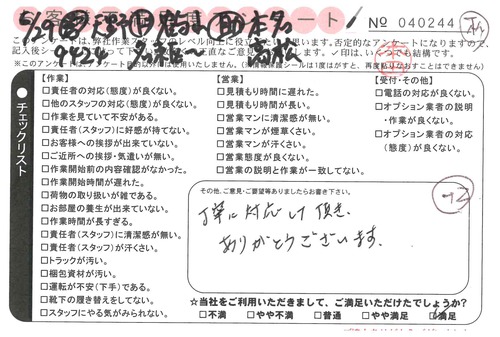 アンケート
No 040244
9424 高松〜高松
チェックリスト
【作業】
□責任者の対応(態度)が良くない。
□他のスタッフの対応(態度)が良くない。
□作業を見ていて不安がある。
□責任者(スタッフ)に好感が持てない。
□お客様への挨拶が出来ていない。
□ご近所への挨拶・気遣いが無い。
□作業開始前の内容確認がなかった。
□作業開始時間が遅れた。
□荷物の取り扱いが雑である。
□お部屋の養生が出来ていない。
□作業時間が長すぎる。
□責任者(スタッフ)に清潔感が無い。
□責任者(スタッフ)が汗くさい。
□トラックが汚い。
□梱包資材が汚い。
□運転が不安(下手)である。
□靴下の履き替えをしてない。
□スタッフにやる気がみられない。
【営業】
□見積もり時間に遅れた。
□見積もり時間が長い。
□営業マンに清潔感が無い。
□営業マンが煙草くさい。
□営業マンが汗くさい。
□営業態度が良くない。
□営業の説明と作業が一致してない。
【受付・その他】
□電話の対応が良くない。
□オプション業者の説明
・作業が良くない。
□オプション業者の対応
(態度)が良くない。
その他、ご意見・ご要望等ありましたらお書き下さい。
丁寧に対応して頂き、
ありがとうございます。
☆当社をご利用いただきまして、ご満足いただけたでしょうか?
□不満 □やや不満 □普通 □やや満足 □満足